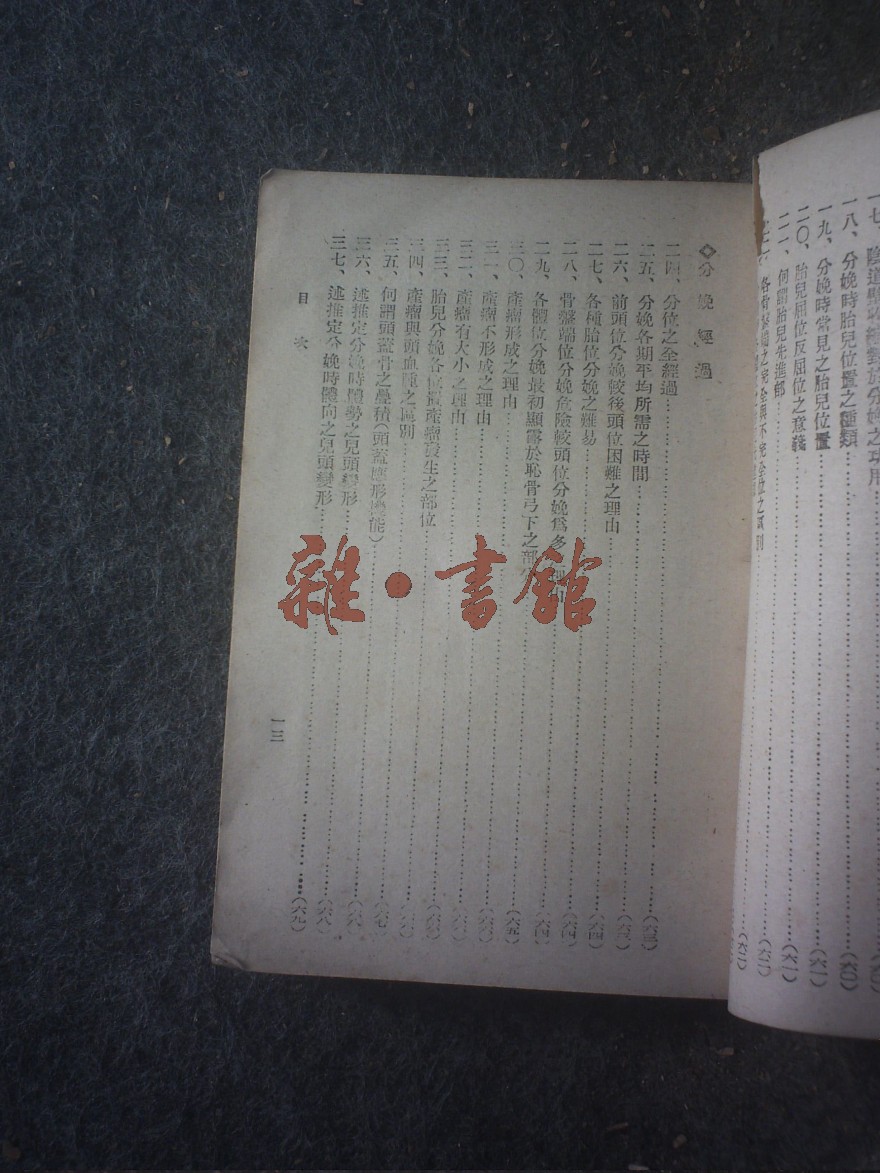 一七、
一八、分娩時胎兒位置之種類……(六〇)
一九、分娩時常見之胎兒位置……(六一)
二〇、胎兒屈位反屈位之意義……(六一)
二一、何謂胎兒先進部……(六一)
◇分娩經過
二四、分位之全經過
二五、分娩各期平均所需之時間……(六三)
二六、前頭位分娩較後頭位困難之理由……(六三)
二七、各種胎位分娩之難易……(六四)
二八、骨盤端位分娩危險較頭位分娩爲多
二九、各體位分娩最初顯露於恥骨弓下之部
三〇、產瘤形成之理由……(六五)
三一、產瘤不形成之理由
三二、產瘤有大小之理由
三三、胎兒分娩各位置產瘤發生之部位
三四、產瘤與頭血腫之區別
三五、何謂頭蓋骨之疊積(頭蓋應形機能)……(六七)
三六、述推定分娩時體勢之兒頭變形……(六八)
三七、述推定分娩時體向之兒頭變形……(六九)
目次
一三
雜·書館